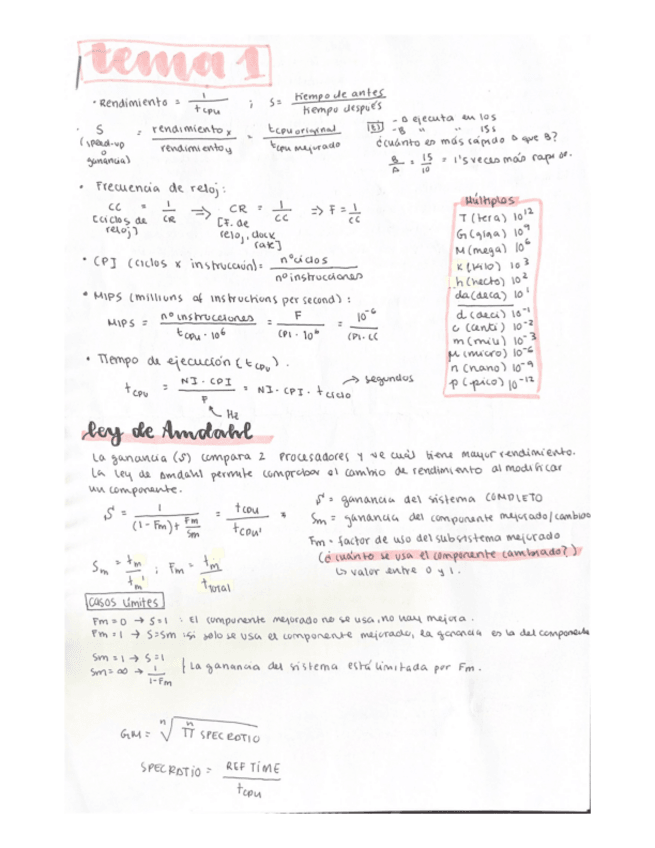 tema 1
• Rendimiento = 1 / tcpu ; S = tiempo de antes / tiempo después
• S (speed-up o ganancia) = rendimiento x / rendimiento y = tcpu original / tcpu mejorado
EJ - A ejecuta en 10s
- B " " 15s
¿cuánto es más rápido A que B?
B/A = 15/10 = 1'5 veces más rápido.
• Frecuencia de reloj:
CC = 1/CR ⇒ CR = 1/CC ⇒ F = 1/CC
[ciclos de reloj] [F. de reloj, clock rate]
• CPI (ciclos x instrucción) = nº ciclos / nº instrucciones
• MIPS (millions of instructions per second):
MIPS = nº instrucciones / tcpu · 10^6 = F / CPI · 10^6 = 10^-6 / CPI · CC
• Tiempo de ejecución (tcpu).
tcpu = NI · CPI / F = NI · CPI · tciclo → segundos
Hz
Múltiplos
T (tera) 10^12
G (giga) 10^9
M (mega) 10^6
K (kilo) 10^3
h (hecto) 10^2
da (deca) 10^1
d (deci) 10^-1
c (centi) 10^-2
m (mili) 10^-3
μ (micro) 10^-6
n (nano) 10^-9
p (pico) 10^-12
ley de Amdahl
La ganancia (S) compara 2 procesadores y ve cuál tiene mayor rendimiento.
La ley de Amdahl permite comprobar el cambio de rendimiento al modificar
un componente.
S' = 1 / (1 - Fm) + Fm/Sm = tcpu / tcpu' *
S' = ganancia del sistema COMPLETO
Sm = ganancia del componente mejorado/cambiado
Fm = factor de uso del subsistema mejorado
(¿cuánto se usa el componente cambiado?)
↳ valor entre 0 y 1.
Sm = tm / tm' ; Fm = tm / ttotal
casos límites
Fm = 0 → S = 1 : El componente mejorado no se usa, no hay mejora.
Fm = 1 → S = Sm : si solo se usa el componente mejorado, la ganancia es la del componente
Sm = 1 → S = 1
Sm = ∞ → 1 / 1-Fm } La ganancia del sistema está limitada por Fm.
GM = ⁿ√ n Π SPEC RATIO
SPEC RATIO = REF TIME / tcpu